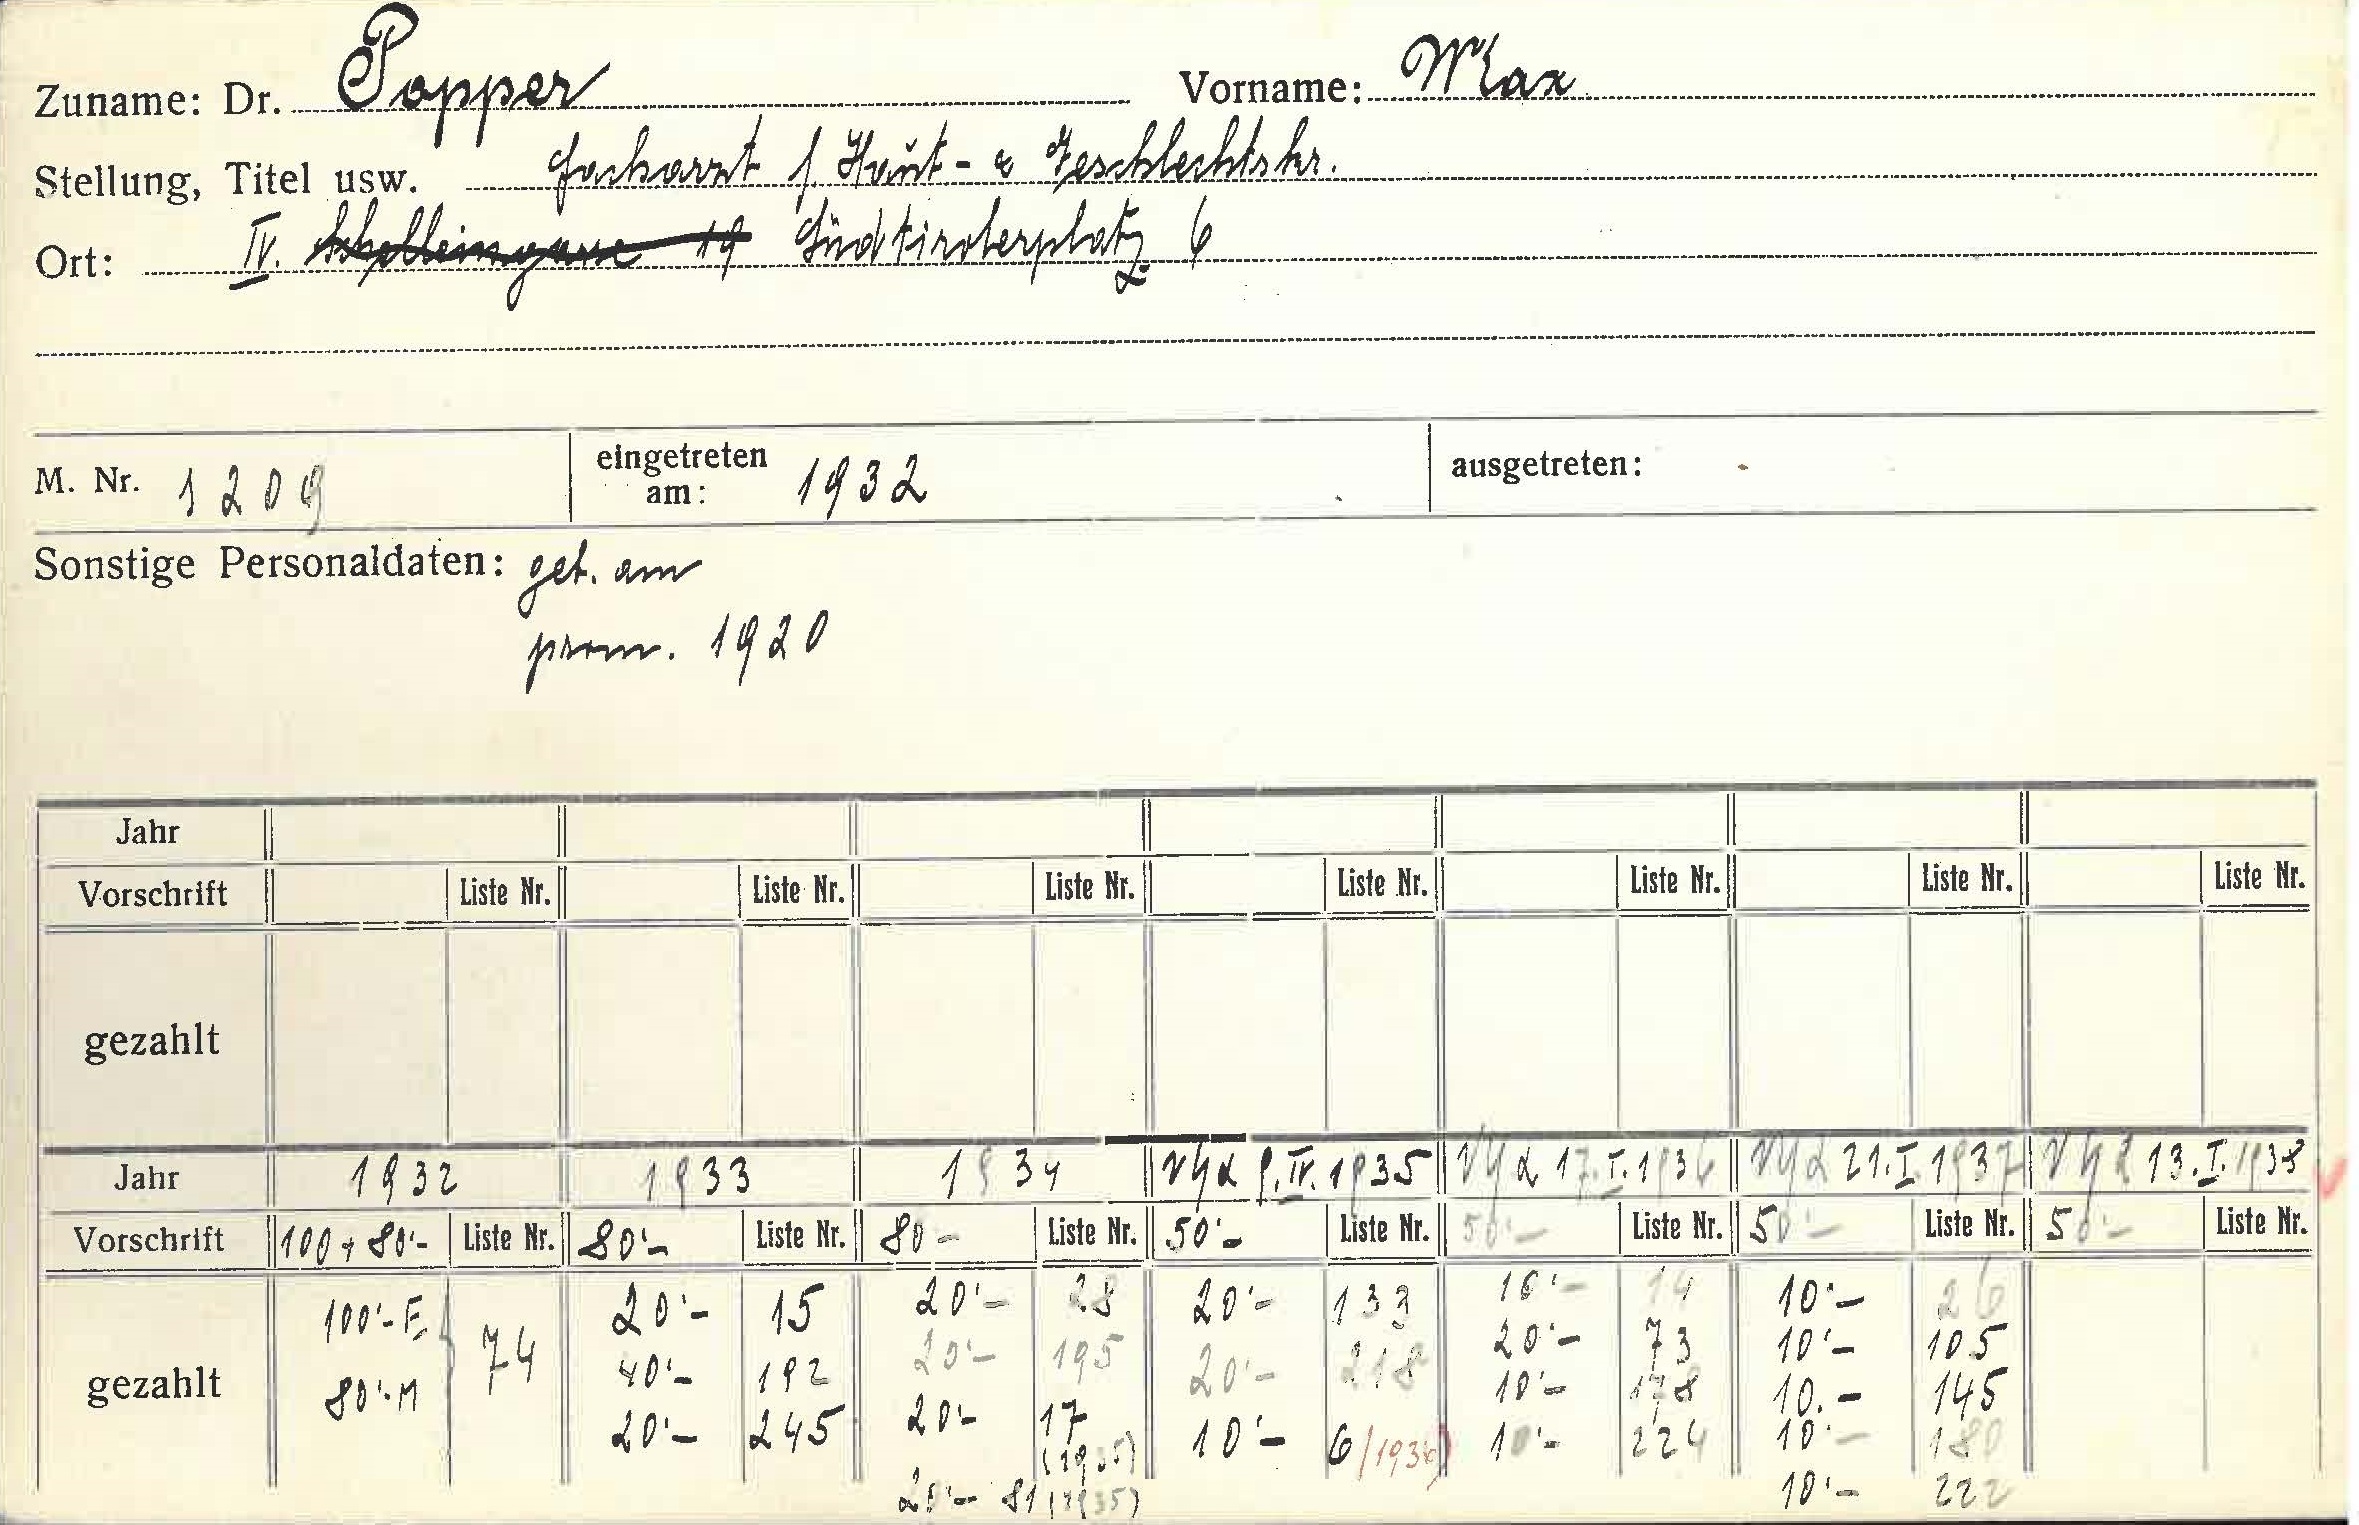 Zuname: Dr. Popper Vorname: Max
Stellung, Titel usw. Facharzt f. Haut- & Geschlechtskr.
Ort: IV. Schelleingasse 19 Südtirolerplatz 6
M. Nr. 1209 eingetreten am: 1932 ausgetreten:
Sonstige Personaldaten: geb. am
prom. 1920
Jahr
Vorschrift Liste Nr. Liste Nr. Liste Nr. Liste Nr. Liste Nr. Liste Nr. Liste Nr.
gezahlt
Jahr 1932 1933 1934 9.IV.1935 17.I.1936 21.I.1937 13.I.1938
Vorschrift 100 + 80'- Liste Nr. 80'- Liste Nr. 80- Liste Nr. 50'- Liste Nr. 50'- Liste Nr. 50'- Liste Nr. 50'- Liste Nr.
100'- E 74 20'- 15 20'- 28 20'- 133 10'- 14 10'- 26
40'- 192 20'- 195 20'- 218 20'- 73 10'- 105
gezahlt 80'- M 20'- 245 20'- 17 10'- 6/1936) 10'- 178 10.- 145
(1935) 10'- 224 10'- 180
20'- 81 (1935) 10'- 222